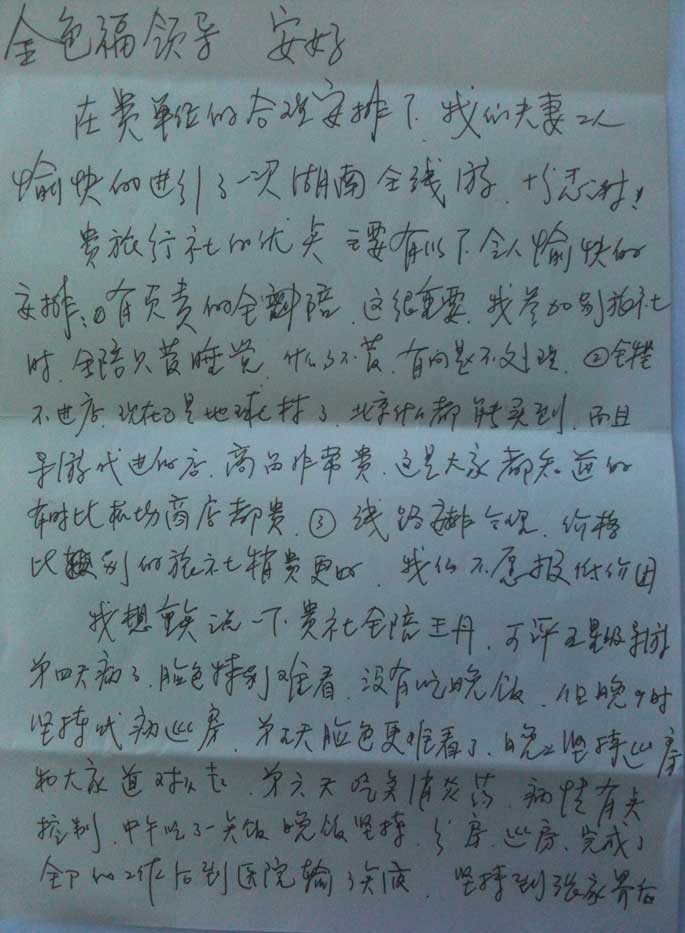 金色福领导 安好
在贵单位的合理安排下，我们夫妻二人
愉快的进行了一次湖南全线游，十分感谢！
贵旅行社的优点 主要有以下令人愉快的
安排：①有负责的全陪，这很重要，我参加别旅社
时，全陪只管睡觉，什么了不管，有问题不处理，②全程
不进店，现在已是地球村了，北京什么都能买到，而且
导游代进的店，商品非常贵，这是大家都知道的
有时比机场商店都贵，③线路安排合理，价格
比别的旅社稍贵更好，我们不愿报低价团
我想重点说一下贵社全陪王丹，可评五星级导游
第四天病了，脸色特别难看，没有吃晚饭，但晚9时
坚持代病巡房，第五天脸色更难看了，晚上坚持巡房
和大家道对不起，第六天吃点消炎药，病情有点
控制，中午吃了一点饭 晚饭坚持，分房，巡房，完成了
全部的工作后到医院输了点液，坚持到张家界右